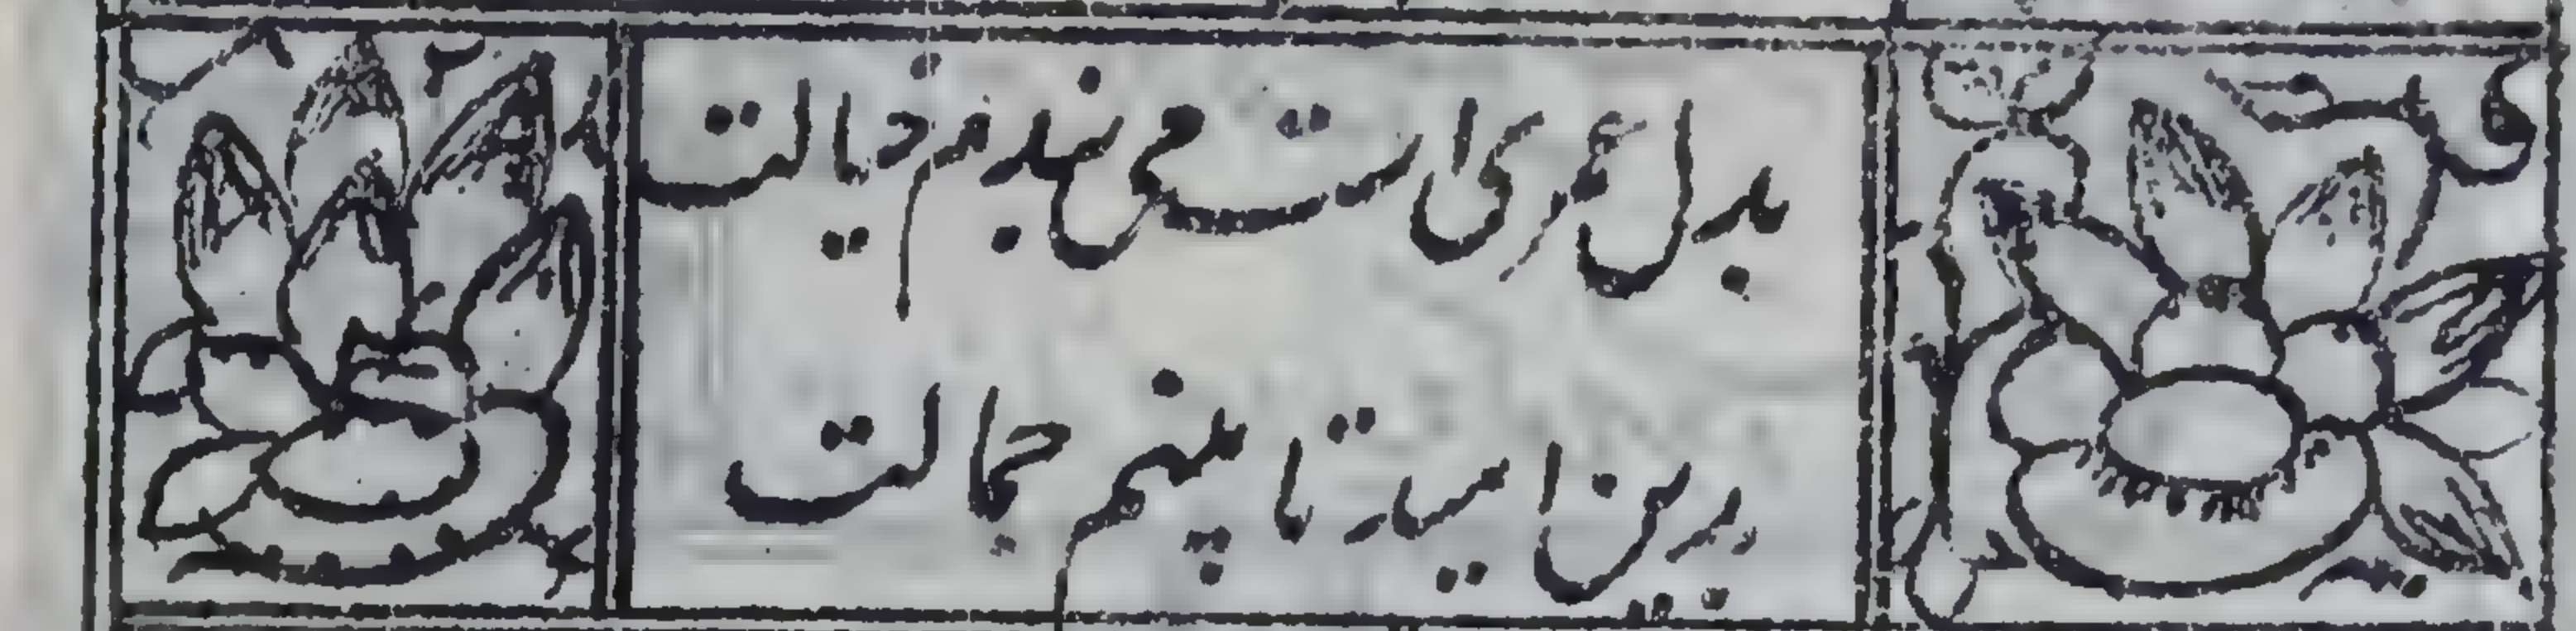 بدل عمری است می بندم خیالت
برین امید تا بینم جمالت